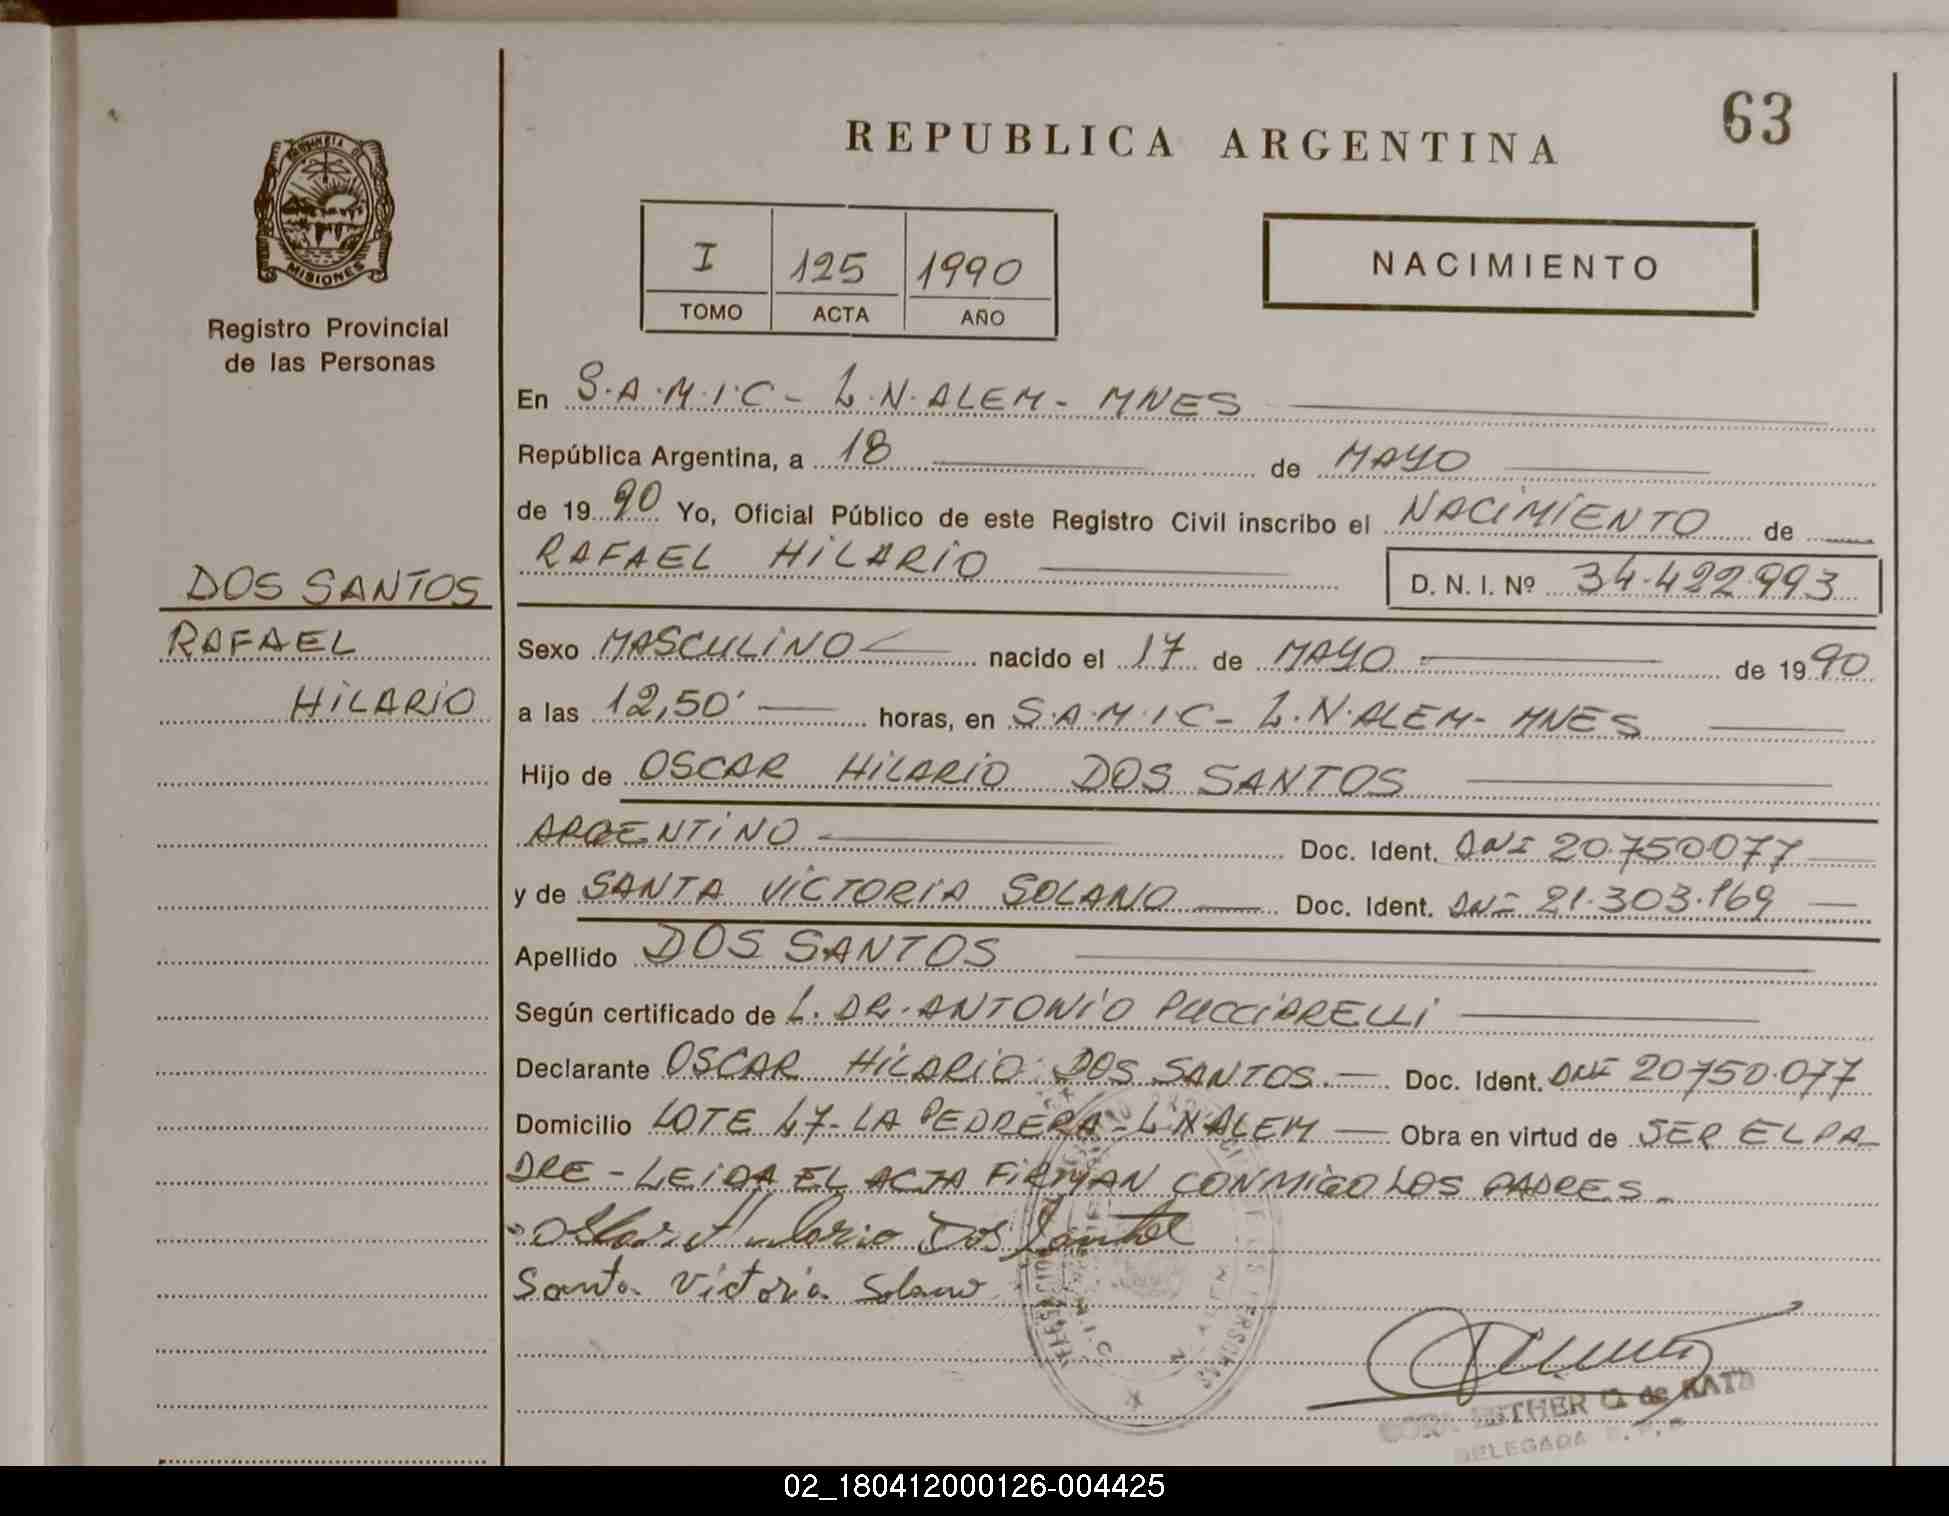 63
REPUBLICA ARGENTINA
PROVINCIA DE
MISIONES
Registro Provincial
de las Personas
I 125 1990
TOMO ACTA AÑO
NACIMIENTO
En S.A.M.I.C - L.N.ALEM - MNES
República Argentina, a 18 de MAYO
de 1990 Yo, Oficial Público de este Registro Civil inscribo el NACIMIENTO de
RAFAEL HILARIO D. N. I. Nº 34.422.993
DOS SANTOS
RAFAEL
HILARIO
Sexo MASCULINO nacido el 17 de MAYO de 1990
a las 12,50' horas, en S.A.M.I.C - L.N.ALEM - MNES
Hijo de OSCAR HILARIO DOS SANTOS
ARGENTINO Doc. Ident. DNI 20.750.077
y de SANTA VICTORIA SOLANO Doc. Ident. DNI 21.303.169
Apellido DOS SANTOS
Según certificado de L. DR. ANTONIO PUCCIARELLI
Declarante OSCAR HILARIO DOS SANTOS.- Doc. Ident. DNI 20750.077
Domicilio LOTE 47 - LA PEDRERA - L.N.ALEM - Obra en virtud de SER EL PA-
DRE - LEIDA EL ACTA FIRMAN CONMIGO LOS PADRES -
Oscar Hilario Dos Santos
Santa Victoria Solano
ESTHER de
DELEGADA
02_180412000126-004425